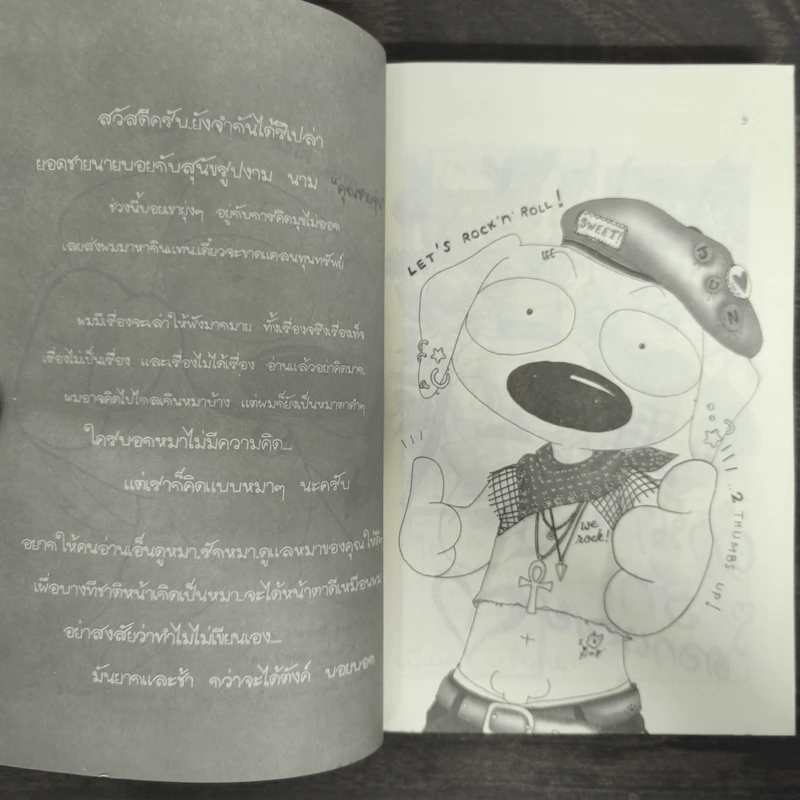 สวัสดีครับ..ยังจำกันได้รึเปล่า
ยอดชายนายบอยกับสุนัขรูปงาม นาม
ช่วงนี้บอยเขายุ่งๆ อยู่กับการคิดมุขไม่ออก
เลยส่งผมมาหากินแทน..เดี๋ยวจะขาดแคลนทุนทรัพย์
ผมมีเรื่องจะเล่าให้ฟังมากมาย ทั้งเรื่องจริงเรื่องเท็จ
เรื่องไม่เป็นเรื่อง และเรื่องไม่ได้เรื่อง อ่านแล้วอย่าคิดมาก
ผมอาจคิดไปไกลเกินหมาบ้าง แต่ผมก็ยังเป็นหมาตาดำๆ
ใครบอกหมาไม่มีความคิด...
แต่เราก็คิดแบบหมาๆ นะครับ
อยากให้คนอ่านเอ็นดูหมา..รักหมา..ดูแลหมาของคุณให้
เผื่อบางทีชาติหน้าเกิดเป็นหมา..จะได้หน้าตาดีเหมือนผม
อย่าสงสัยว่าทำไมไม่เขียนเอง...
มันยากและช้า กว่าจะได้ตังค์ บอยบอก
LET'S ROCK 'N' ROLL!
SWEET!
J
U
N
we
rock!
...2 THUMBS UP!